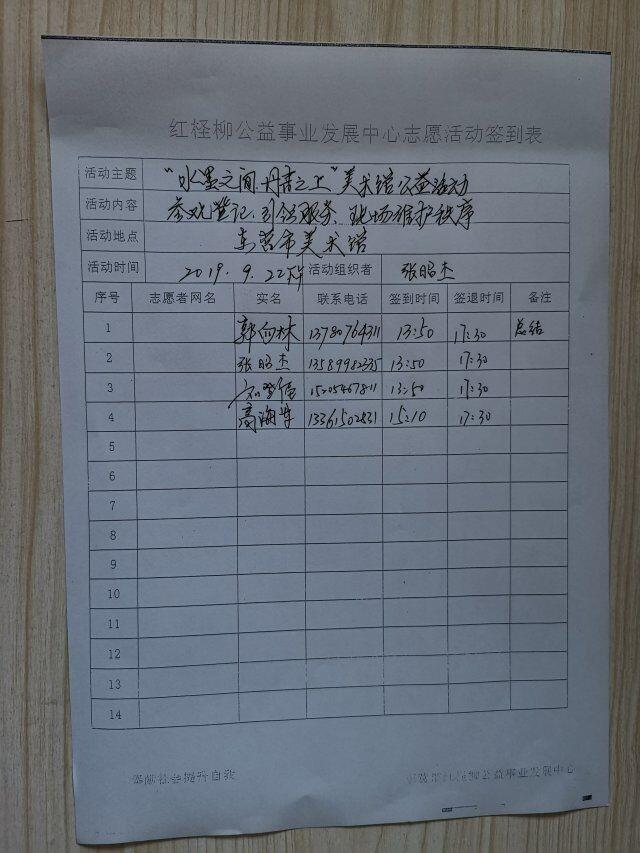 红柽柳公益事业发展中心志愿活动签到表
活动主题 "水墨之间·丹青之上"美术馆公益活动
活动内容 参观登记、引领服务、现场维护秩序
活动地点 东营市美术馆
活动时间 2019.9.22下午 活动组织者 张昭杰
序号 志愿者网名 实名 联系电话 签到时间 签退时间 备注
1 郭向林 13780764311 13:50 17:30 总结
2 张昭杰 13589982335 13:50 17:30
3 15205467811 13:50 17:30
4 高海 13361502831 15:10 17:30
5
6
7
8
9
10
11
12
13
14
奉献社会提升自我 东营市红柽柳公益事业发展中心